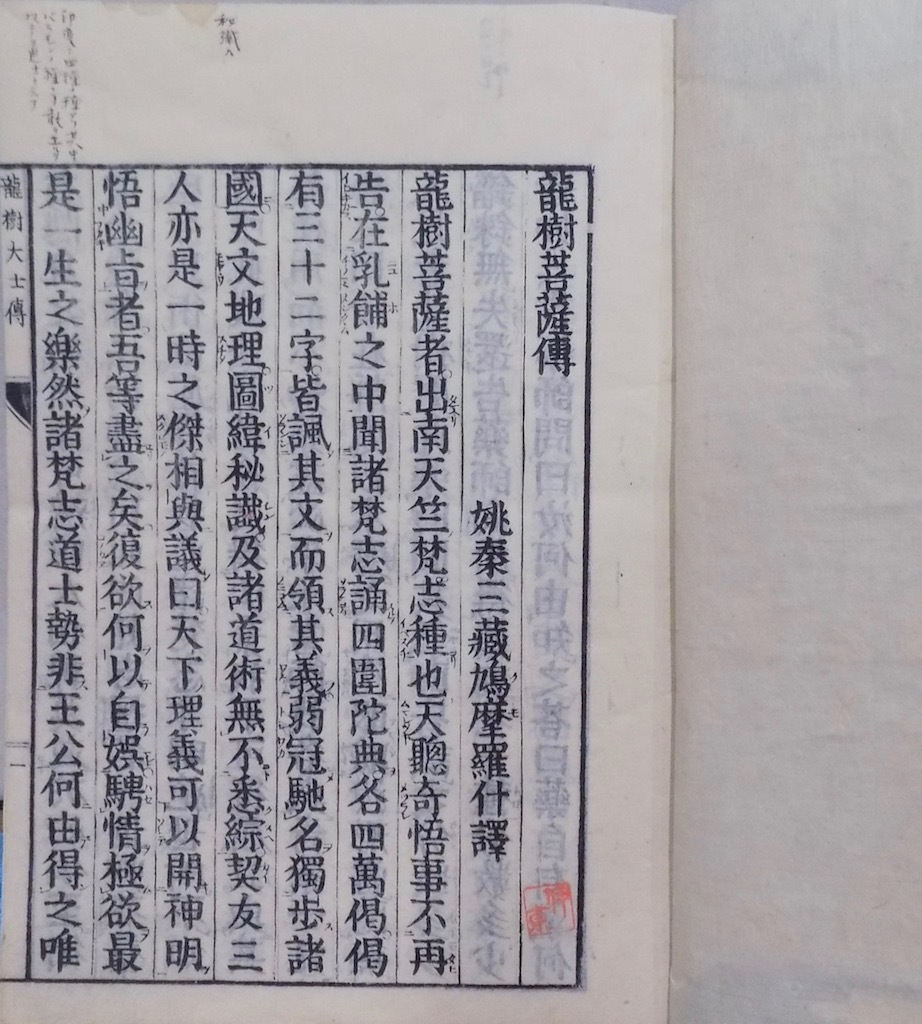 龍樹菩薩傳
姚秦三藏鳩摩羅什譯
龍樹菩薩者出南天竺梵志種也天聰奇悟事不再
告在乳餔之中聞諸梵志誦四圍陀典各四萬偈偈
有三十二字皆諷其文而領其義弱冠馳名獨步諸
國天文地理圖緯秘讖及諸道術無不悉綜契友三
人亦是一時之傑相與議曰天下理義可以開神明
悟幽旨者吾等盡之矣復欲何以自娛騁情極欲最
是一生之樂然諸梵志道士勢非王公何由得之唯
龍樹大士傳
一